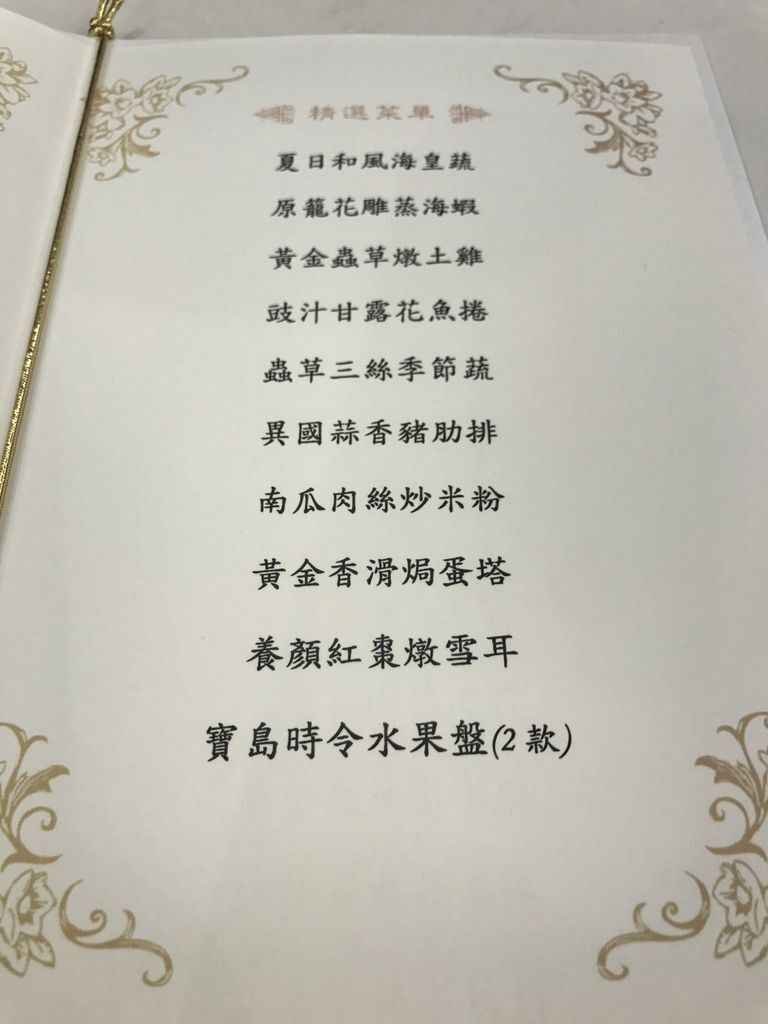 精選菜單
夏日和風海皇蔬
原籠花雕蒸海蝦
黃金蟲草燉土雞
豉汁甘露花魚捲
蟲草三絲季節蔬
異國蒜香豬肋排
南瓜肉絲炒米粉
黃金香滑焗蛋塔
養顏紅棗燉雪耳
寶島時令水果盤(2款)